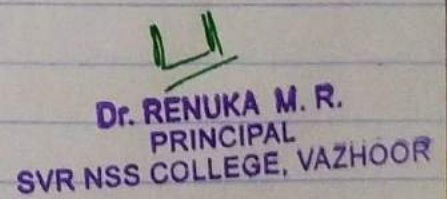 Dr. RENUKA M. R.
PRINCIPAL
SVR NSS COLLEGE, VAZHOOR